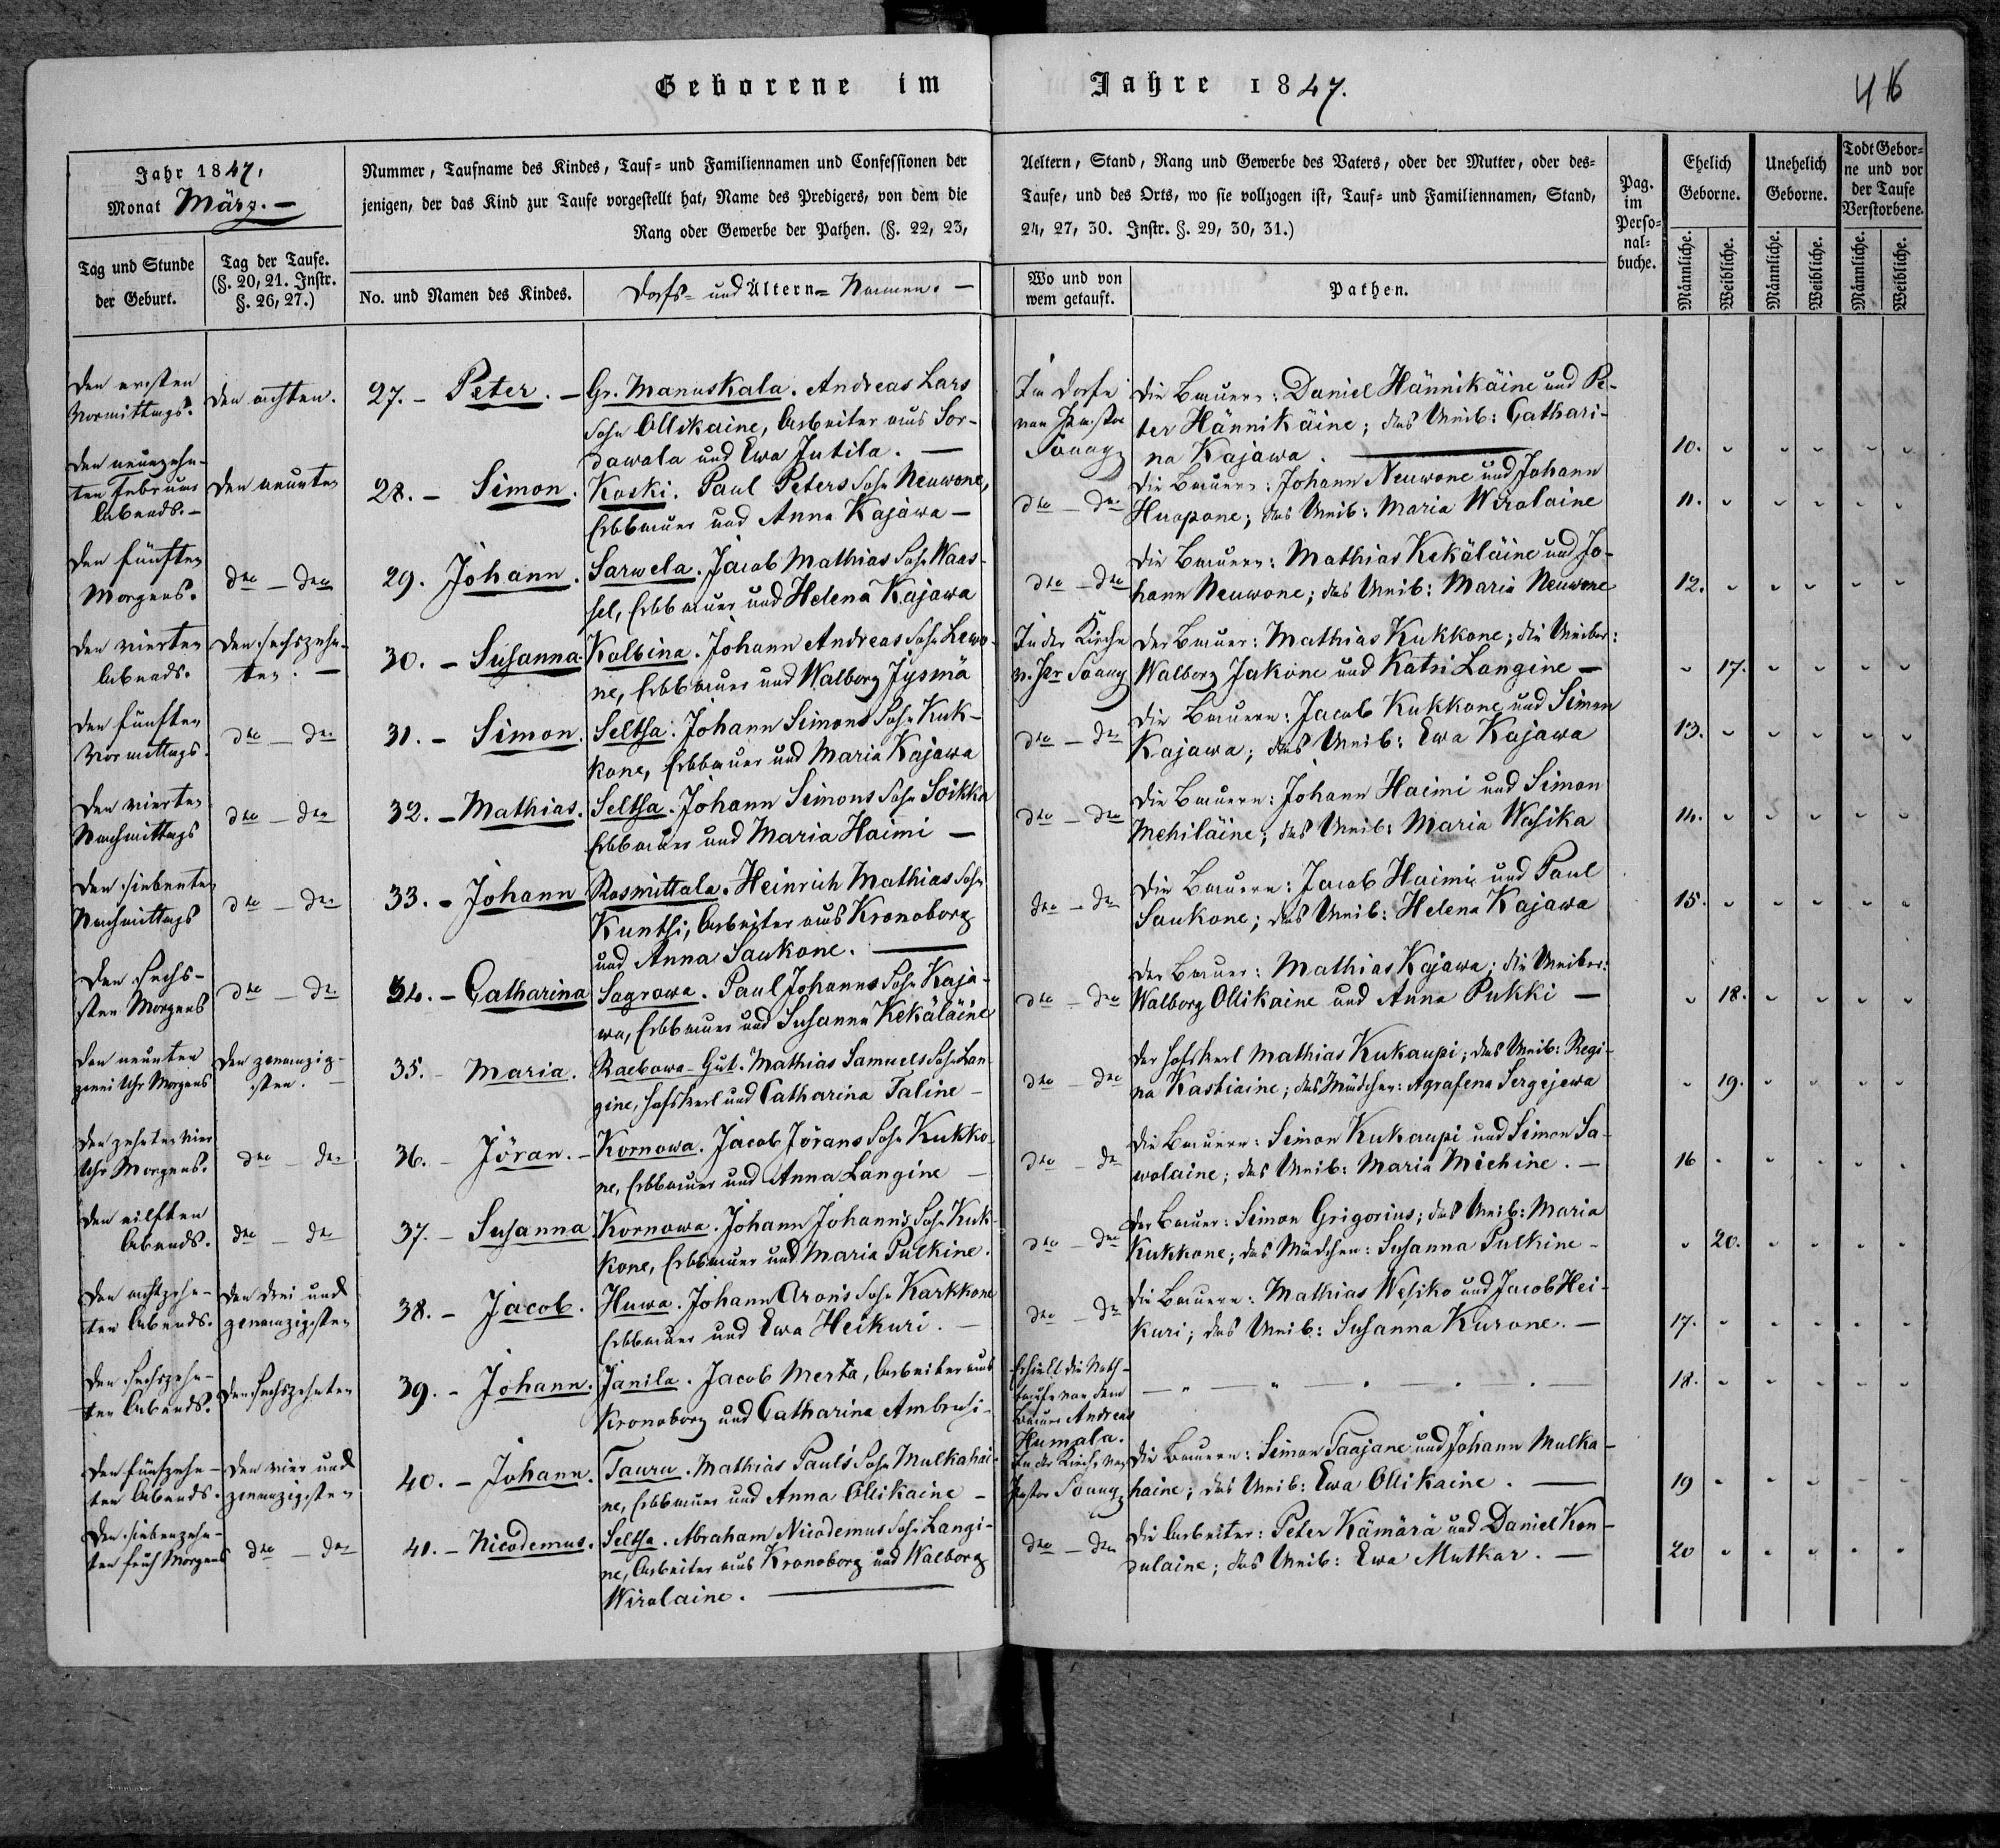 Geborene im Jahre 1847.
46
Jahr 1847,
Monat März. —
Nummer, Taufname des Kindes, Tauf- und Familiennamen und Confessionen der
Aeltern, Stand, Rang und Gewerbe des Vaters, oder der Mutter, oder des-
jenigen, der das Kind zur Taufe vorgestellt hat, Name des Predigers, von dem die
Taufe, und des Orts, wo sie vollzogen ist, Tauf- und Familiennamen, Stand,
Rang oder Gewerbe der Pathen. (§. 22, 23,
24, 27, 30. Instr. §. 29, 30, 31.)
Pag.
im
Perso-
nal-
buche.
Ehelich
Geborne.
Unehelich
Geborne.
Todt Gebor-
ne und vor
der Taufe
Verstorbene.
Tag und Stunde
der Geburt.
Tag der Taufe.
(§. 20, 21. Instr.
§. 26, 27.)
No. und Namen des Kindes.
Dorfs- und Altern- Namen. —
Wo und von
wem getauft.
Pathen.
Männliche.
Weibliche.
Männliche.
Weibliche.
Männliche.
Weibliche.
den ersten
Vormittags.
den achten.
27. - Peter. -
Gr. Manuskala. Andreas Lars
Sohn Ollikaine, Arbeiter aus Sor-
dawala und Ewa Jutila. —
Im Dorfe
von Pastor
Die Bauern: Daniel Hännikäine und Pe-
ter Hännikäine; das Weib: Cathari-
na Kajawa.
10.
den neunzehn-
ten Februar
Abends. -
den neunten
28. - Simon.
Koski. Paul Peters Sohn Neuwone,
Erbbauer und Anna Kajawa —
dto — dto
Die Bauern: Johann Neuwone und Johann
Huopone; das Weib: Maria Wirolaine
11.
den fünften
Morgens.
dto — dto
29. Johann.
Sarwela. Jacob Mathias Sohn Waas-
sel, Erbbauer und Helena Kajawa
dto — dto
Die Bauern: Mathias Kekäläine und Jo-
hann Neuwone; das Weib: Maria Neuwone
12.
den vierten
Abends.
den sechszehn-
ten. —
30. - Susanna.
Kolbina. Johann Andreas Sohn Lewo-
ne, Erbbauer und Walborg Jysmä
In der Kirche
Der Bauer: Mathias Kukkone; die Weiber:
Walborg Jakone und Katri Langine —
17.
den fünften
Vormittags.
dto — dto
31. - Simon.
Seltsa. Johann Simons Sohn Kuk-
kone, Erbbauer und Maria Kajawa
dto — dto
Die Bauern: Jacob Kukkone und Simon
Kajawa; das Weib: Ewa Kajawa
13.
den vierten
Nachmittags
dto — dto
32. - Mathias.
Seltsa. Johann Simons Sohn Soikka
Erbbauer und Maria Haimi —
dto — dto
Die Bauern: Johann Haimi und Simon
Mehiläine; das Weib: Maria Wasika
14.
den siebenten
Nachmittags
dto — dto
33. - Johann
Rosmittala. Heinrich Mathias Sohn
Kuntsi, Arbeiter aus Kronoborg
und Anna Saukone.
dto — dto
Die Bauern: Jacob Haimi und Paul
Saukone; das Weib: Helena Kajawa
15.
den sechs-
sten Morgens
dto — dto
34. - Catharina
Sagrowa. Paul Johanns Sohn Kaja-
wa, Erbbauer und Susanna Kekäläine
dto — dto
Der Bauer: Mathias Kajawa; die Weiber:
Walborg Ollikaine und Anna Pukki —
18.
den neunten
zwei Uhr Morgens
den zwanzig-
sten. —
35. - Maria.
Raebowa-Gut. Mathias Samuels Sohn Lan-
gine, Hofskerl und Catharina Taline —
dto — dto
Der Hofskerl Mathias Kukaupi; das Weib: Regi-
na Kastiaine; das Mädchen: Agrafena Sergejewa
19.
den zehnten vier
Uhr Morgens.
dto — dto
36. - Jöran. -
Kornowa. Jacob Jörans Sohn Kukko-
ne, Erbbauer und Anna Langine —
dto — dto
Die Bauern: Simon Kukaupi und Simon Sa-
wolaine; das Weib: Maria Miehine. —
16
den eilften
Abends.
dto — dto
37. - Susanna
Kornowa. Johann Johann's Sohn Kuk-
kone, Erbbauer und Maria Pulkine.
dto — dto
Der Bauer: Simon Grigorius; das Weib: Maria
Kukkone; das Mädchen: Susanna Pulkine —
20.
den achtzehn-
ten Abends.
den drei und
zwanzigsten
38. - Jacob.
Huwa. Johann Aron's Sohn Karkkone
Erbbauer und Ewa Heikuri. —
dto — dto
Die Bauern: Mathias Wesiko und Jacob Hei-
kuri; das Weib: Susanna Kurone. —
17.
den sechszehn-
ten Abends.
den sechszehnten
39. - Johann.
Janila. Jacob Merta, Arbeiter aus
Kronoborg und Catharina Ambrusi-
Erhielt die Noth-
taufe von dem
Bauer Andreas
Humala.
18.
den fünfzehn-
ten Abends.
den vier und
zwanzigsten
40. - Johann.
Tauru. Mathias Paul's Sohn Mulkahai-
ne, Erbbauer und Anna Ollikaine —
In der Kirche von
Die Bauern: Simon Taajane und Johann Mulka-
haine; das Weib: Ewa Ollikaine. —
19
den siebenzehn-
ten früh Morgens
dto — dto
41. - Nicodemus.
Seltsa. Abraham Nicodemus Sohn Langi-
ne, Arbeiter aus Kronoborg und Walborg
Wirolaine.
dto — dto
Die Arbeiter: Peter Kämärä und Daniel Kon-
dulaine; das Weib: Ewa Mutkar. —
20